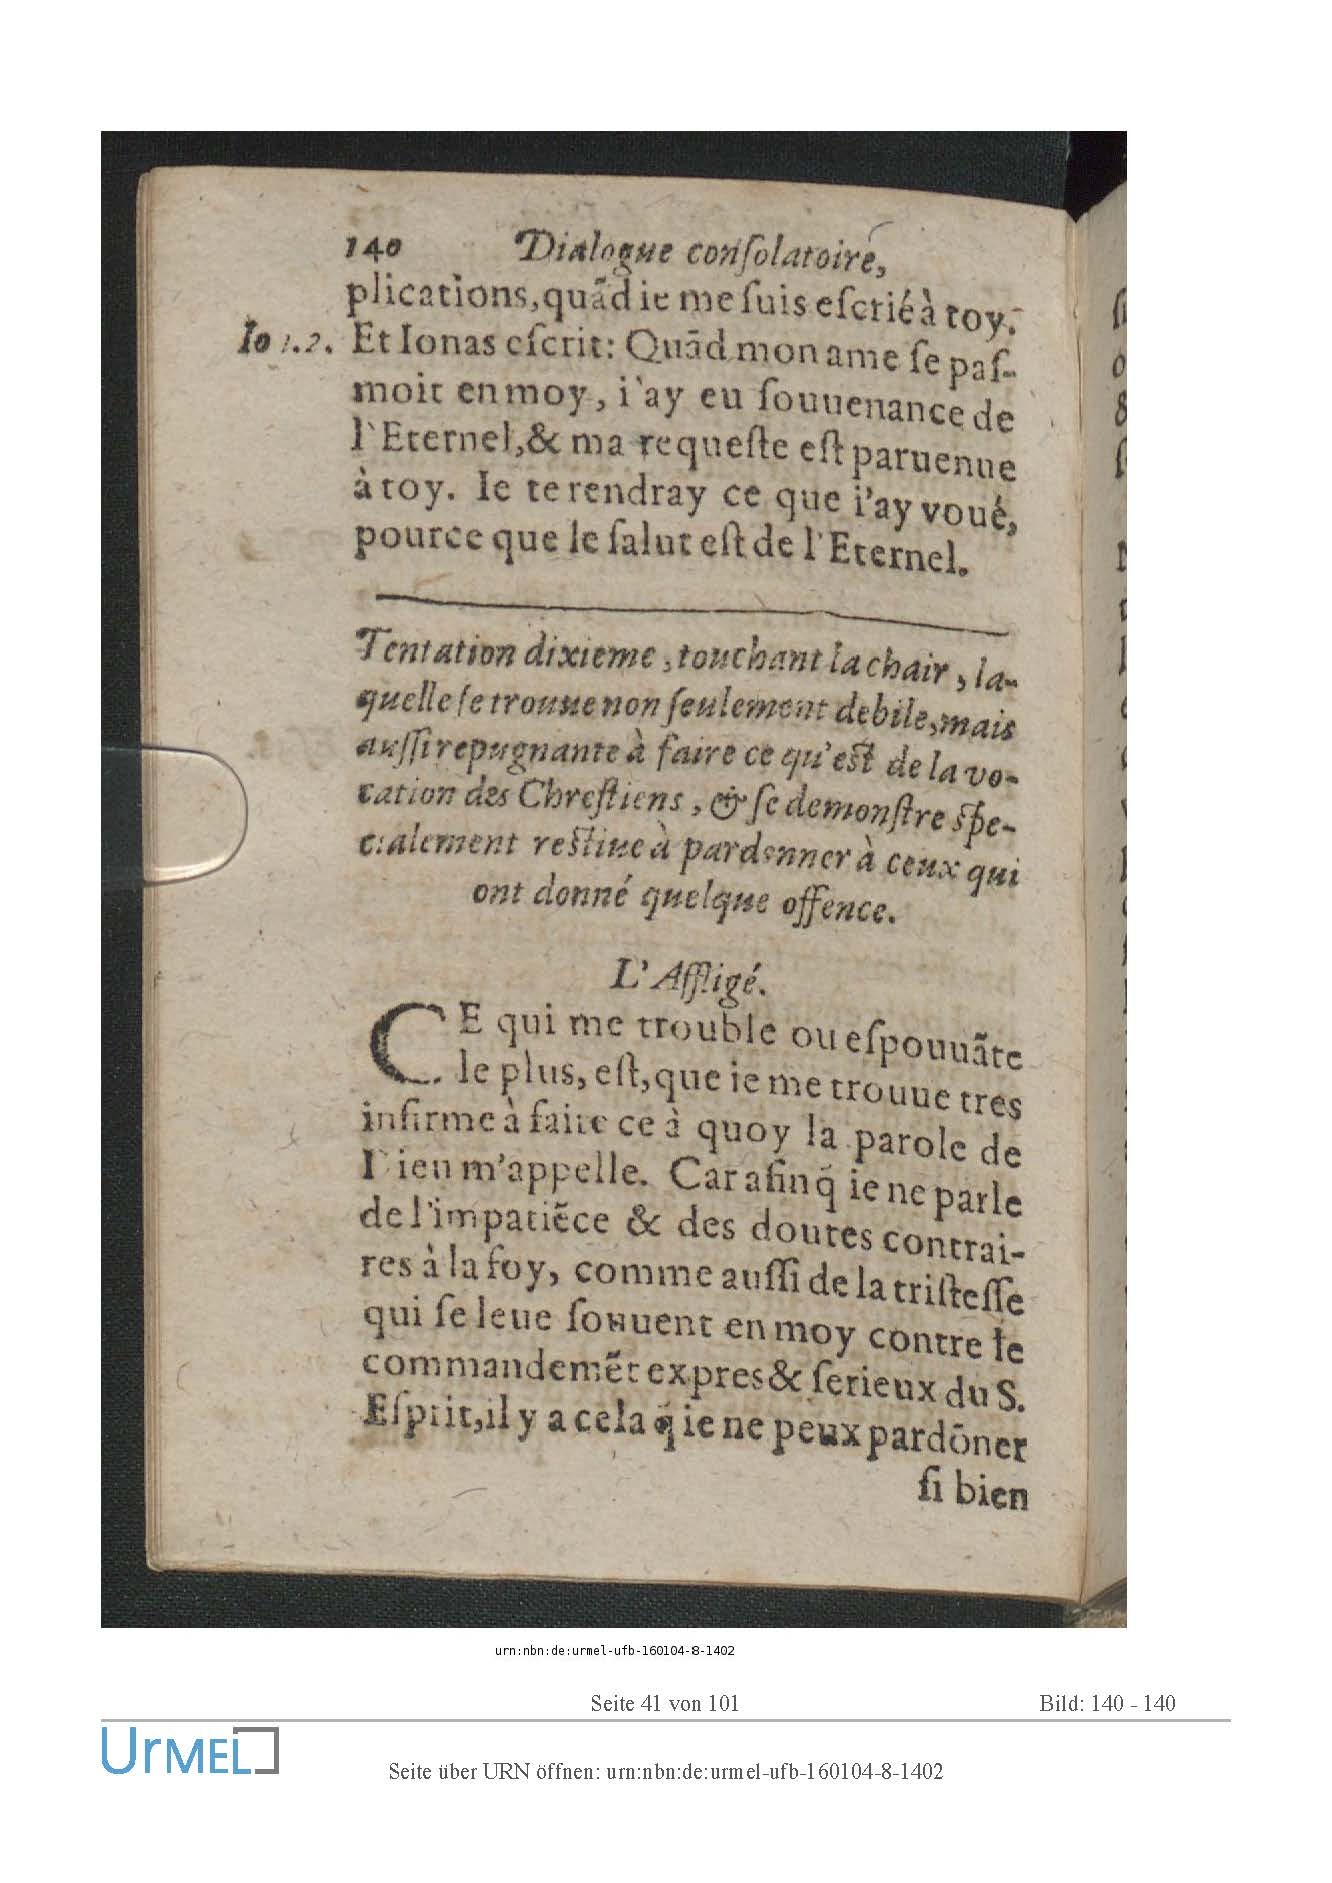 140 Dialogue conſolatoire,
plications, quãd ie me ſuis eſcrié à toy.
Io 1.2. Et Ionas eſcrit: Quãd mon ame ſe paſ-
moit en moy, i'ay eu ſouuenance de
l'Eternel, & ma requeſte eſt paruenue
à toy. Ie te rendray ce que i'ay voué,
pource que le ſalut eſt de l'Eternel.
Tentation dixieme, touchant la chair, la-
quelle ſe trouue non ſeulement debile, mais
auſſi repugnante à faire ce qu'eſt de la vo-
cation des Chreſtiens, & ſe demonſtre ſpe-
cialement reſtiue à pardonner à ceux qui
ont donné quelque offence.
L'Affligé.
CE qui me trouble ou eſpouuãte
le plus, eſt, que ie me trouue tres
infirme à faire ce à quoy la parole de
Dieu m'appelle. Car afin q̃ ie ne parle
de l'impatiẽce & des doutes contrai-
res à la foy, comme auſſi de la triſteſſe
qui ſe leue ſouuent en moy contre le
commandemẽt expres & ſerieux du S.
Eſprit, il y a cela q̃ ie ne peux pardõner
ſi bien
urn:nbn:de:urmel-ufb-160104-8-1402
Seite 41 von 101 Bild: 140 - 140
UrMEL
Seite über URN öffnen: urn:nbn:de:urmel-ufb-160104-8-1402